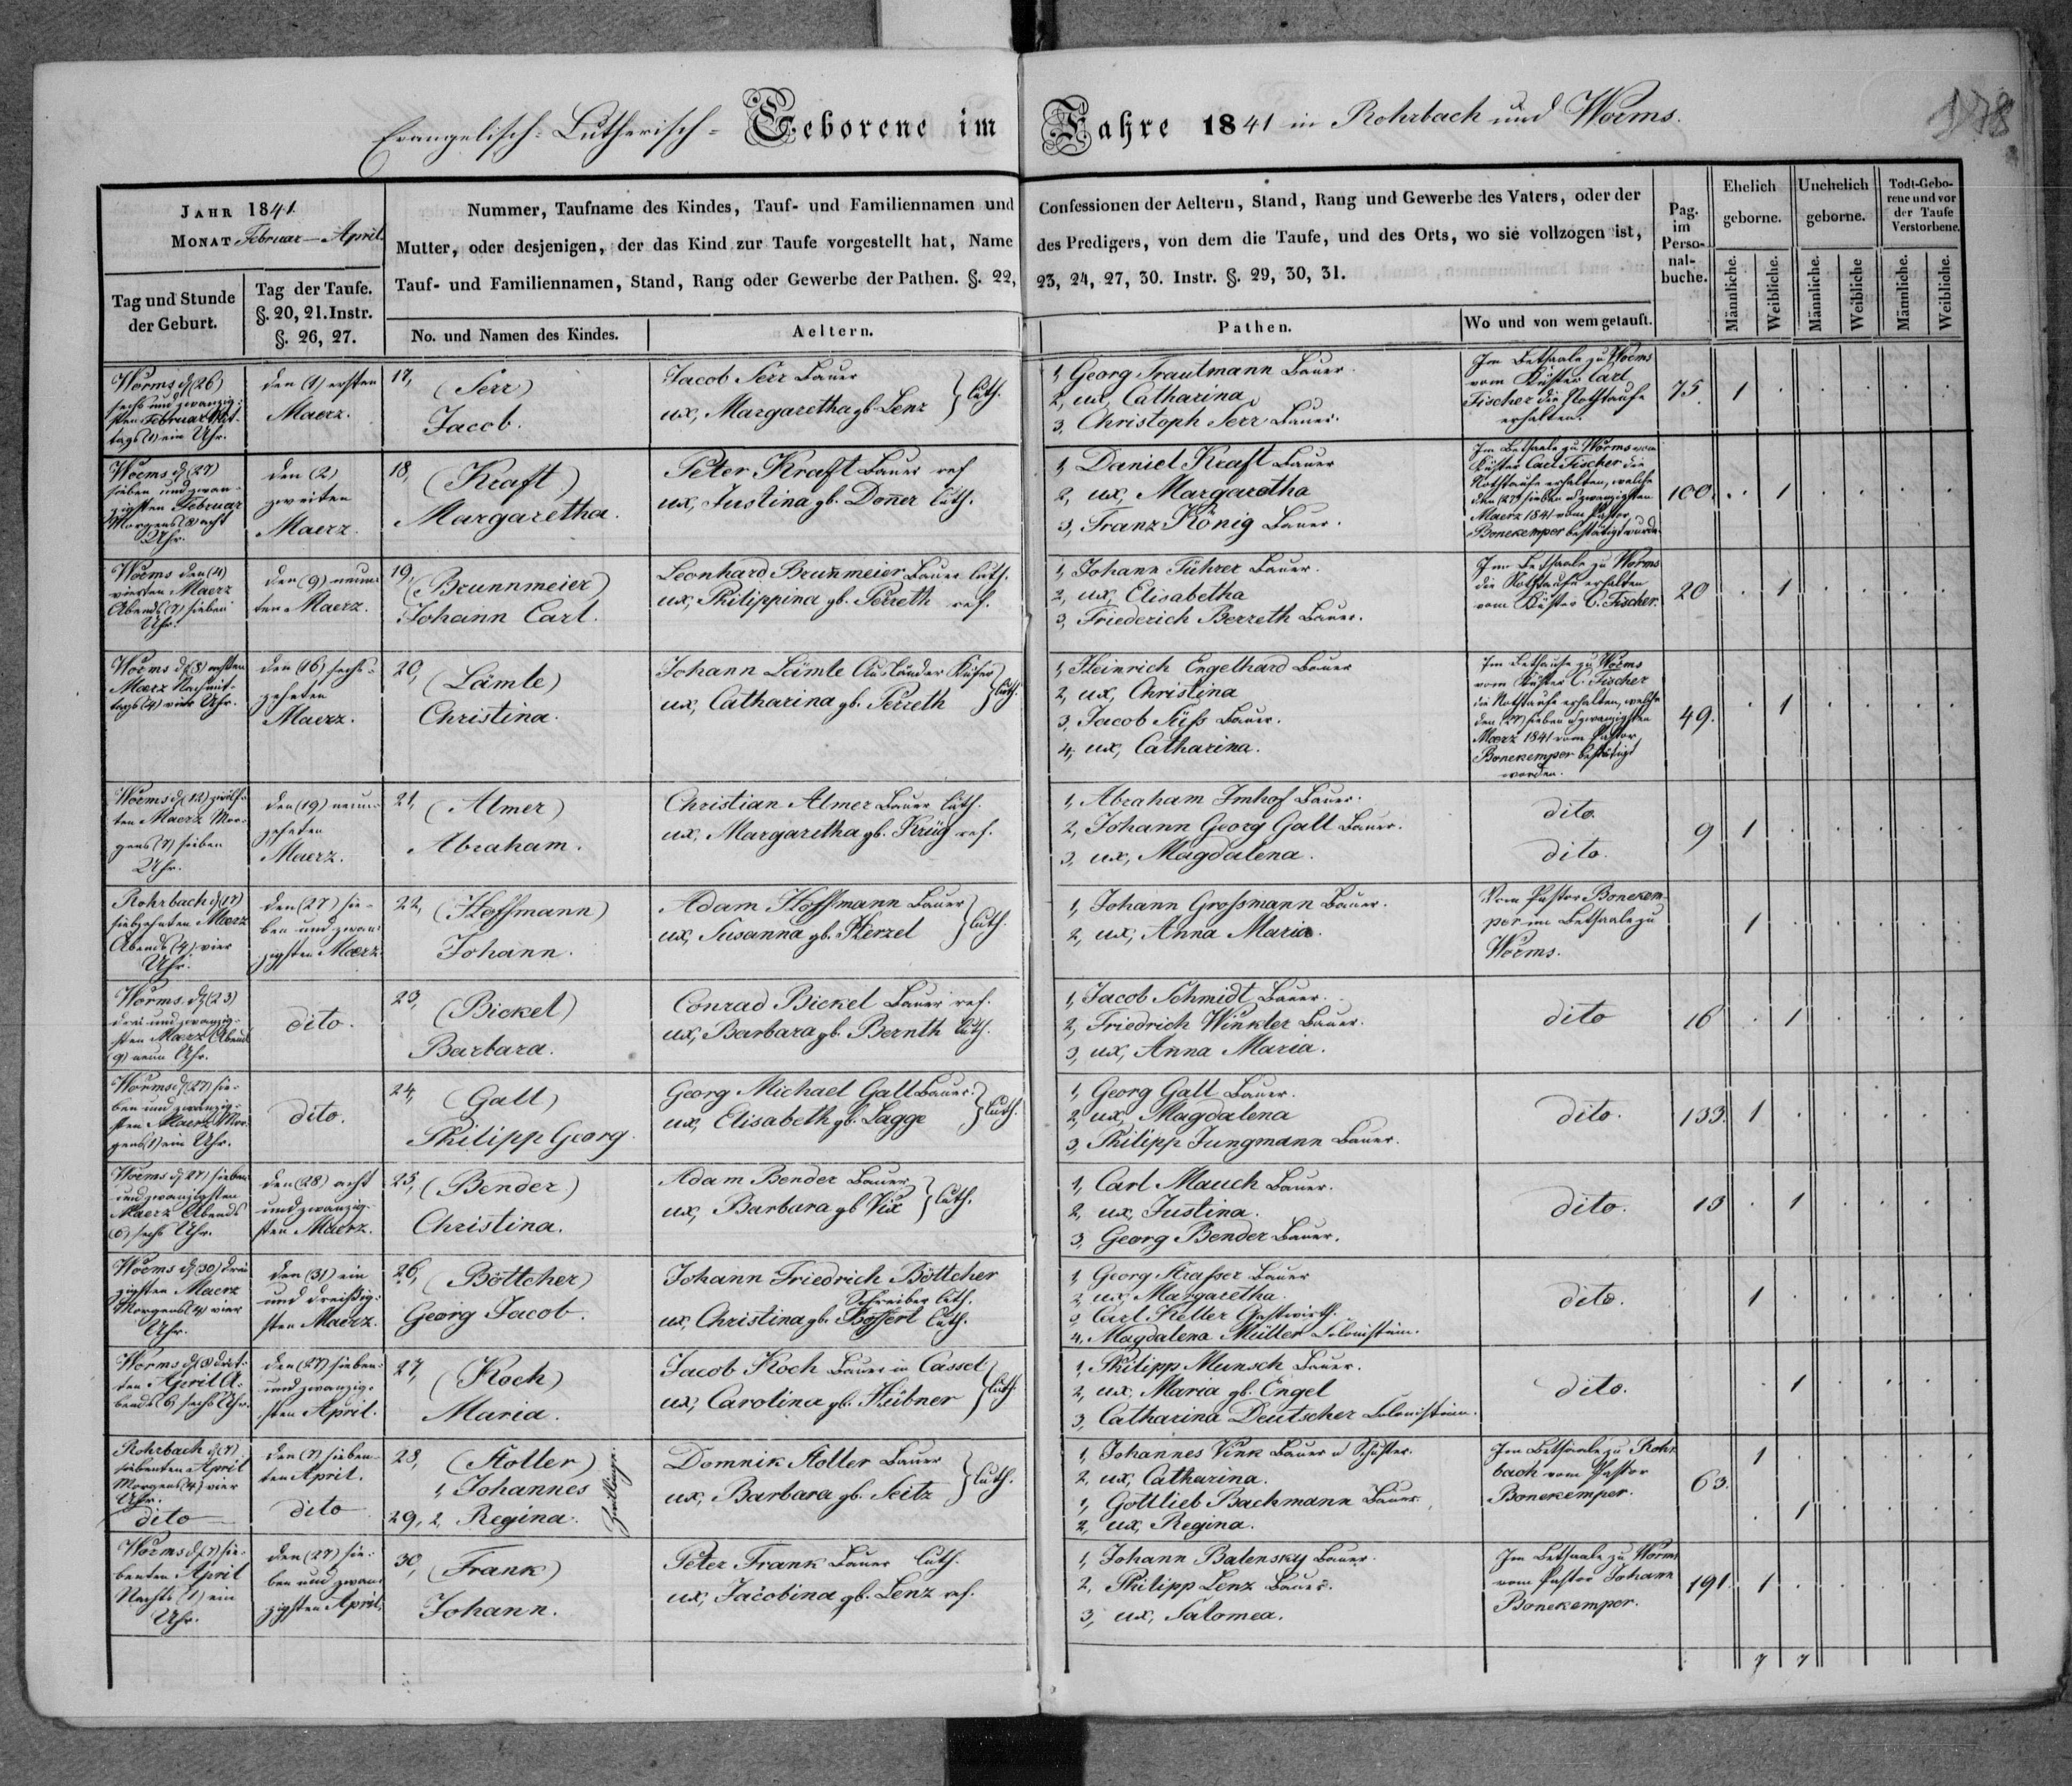 Evangelisch-Lutherisch-Geborene im Jahre 1841 in Rohrbach und Worms.
178
JAHR 1841.
MONAT Februar—April.
Tag und Stunde der Geburt.
Tag der Taufe. §. 20, 21. Instr. §. 26, 27.
Nummer, Taufname des Kindes, Tauf- und Familiennamen und Confessionen der Aeltern, Stand, Rang und Gewerbe des Vaters, oder der
Mutter, oder desjenigen, der das Kind zur Taufe vorgestellt hat, Name des Predigers, von dem die Taufe, und des Orts, wo sie vollzogen ist,
Tauf- und Familiennamen, Stand, Rang oder Gewerbe der Pathen. §. 22, 23, 24, 27, 30. Instr. §. 29, 30, 31.
No. und Namen des Kindes.
Aeltern.
Pathen.
Wo und von wem getauft.
Pag. im Perso-nal-buche.
Ehelich geborne.
Unehelich geborne.
Todt-Gebo-rene und vor der Taufe Verstorbene.
Männliche. Weibliche. Männliche. Weibliche Männliche. Weibliche.
Worms d. (26)
sechs und zwanzig-
sten Februar Mit-
tags (1) ein Uhr.
den (1) ersten
Maerz.
17, (Serr)
Jacob.
Jacob Serr Bauer
ux, Margaretha gb. Lenz } luth.
1, Georg Trautmann Bauer.
2, ux, Catharina
3, Christoph Serr Bauer.
Im Bethsaale zu Worms
vom Küster Carl
Fischer die Nothtaufe
erhalten.
75. 1
Worms d. (27)
sieben und zwan-
zigsten Februar
Morgens (8) acht
Uhr.
den (2)
zweiten
Maerz.
18, (Kraft)
Margaretha.
Peter Krafft Bauer ref
ux, Justina gb. Doñer luth.
1, Daniel Kraft Bauer
2, ux, Margaretha
3, Franz König Bauer.
Im Bethsaale zu Worms vom
Küster Carl Fischer die
Nothtaufe erhalten, welche
den (27) sieben u zwanzigsten
Maerz 1841 vom Pastor
Bonekemper bestätigt wurde.
100. 1
Worms den (4)
vierten Maerz
Abends (7) sieben
Uhr.
den (9) neun-
ten Maerz.
19, (Brunnmeier)
Johann Carl.
Leonhard Bruñmeier Bauer luth.
ux, Philippina gb. Perreth ref.
1, Johann Führer Bauer.
2, ux, Elisabetha
3, Friederich Berreth Bauer.
Im Bethsaale zu Worms
die Nothtaufe erhalten
vom Küster C. Fischer.
20 1
Worms d. (8) achten
Maerz Nachmit-
tags (4) vier Uhr.
den (16) sechs-
zehnten
Maerz.
20, (Lämle)
Christina.
Johann Lämle Ausländer Küfer
ux, Catharina gb. Perreth } luth.
1, Heinrich Engelhard Bauer
2, ux, Christina
3, Jacob Süss Bauer.
4, ux, Catharina.
Im Bethause zu Worms
vom Küster C. Fischer
die Nothtaufe erhalten, welche
den (27) sieben u zwanzigsten
Maerz 1841 vom Pastor
Bonekemper bestätigt
worden.
49. 1
Worms d. (12) zwölf-
ten Maerz Mor-
gens (7) sieben
Uhr.
den (19) neun-
zehnten
Maerz.
21, (Almer)
Abraham.
Christian Almer Bauer luth.
ux, Margaretha gb. Krüg ref.
1, Abraham Imhof Bauer.
2, Johann Georg Gall Bauer.
3, ux, Magdalena.
dito.
dito.
9 1
Rohrbach d. (17)
siebzehnten Maerz
Abends (4) vier
Uhr.
den (27) sie-
ben und zwan-
zigsten Maerz.
22, (Hoffmann)
Johann.
Adam Hoffmann Bauer
ux, Susanna gb. Herzel } luth.
1, Johann Grossmann Bauer.
2, ux, Anna Maria.
Vom Pastor Bonekem-
per im Bethsaale zu
Worms.
1
Worms. d. (23)
drei und zwanzig-
sten Maerz Abends
(9) neun Uhr.
dito.
23, (Bickel)
Barbara.
Conrad Bickel Bauer ref.
ux, Barbara gb. Bernth luth.
1, Jacob Schmidt Bauer.
2, Friedrich Winkler Bauer.
3, ux, Anna Maria.
dito
16 1
Worms d. (27) sie-
ben und zwanzig-
sten Maerz Mor-
gens (1) ein Uhr.
dito.
24, (Gall)
Philipp Georg.
Georg Michael Gall Bauer.
ux, Elisabeth gb. Sagge } luth.
1, Georg Gall Bauer.
2, ux, Magdalena
3, Philipp Jungmann Bauer.
dito.
133. 1
Worms d. (27) sieben
und zwanzigsten
Maerz Abends
(6) sechs Uhr.
den (28) acht
und zwanzig-
sten Maerz.
25, (Bender)
Christina.
Adam Bender Bauer
ux, Barbara gb Vix } luth.
1, Carl Mauch Bauer.
2, ux, Justina.
3, Georg Bender Bauer.
dito.
13 1
Worms d. (30) drei-
zigsten Maerz
Morgens (4) vier
Uhr.
den (31) ein
und dreissig-
sten Maerz.
26, (Böttcher)
Georg Jacob.
Johann Friedrich Böttcher
Schreiber luth.
ux, Christina gb. Bossert luth.
1, Georg Strasser Bauer
2, ux, Margaretha.
3, Carl Keller Gastwirth.
4, Magdalena Müller Colonistin.
dito.
1
Worms d. (3) drit-
ten April A-
bends (6) sechs Uhr.
den (27) sieben-
und zwanzig-
sten April.
27, (Koch)
Maria.
Jacob Koch Bauer in Cassel
ux, Carolina gb. Hübner } luth.
1, Philipp Munsch Bauer.
2, ux, Maria gb. Engel
3, Catharina Deutscher Colonistin.
dito.
1
Rohrbach d. (7)
siebenten April
Morgens (4) vier
Uhr.
dito
den (7) sieben-
ten April.
dito
28, (Stoller)
1, Johannes
29, 2, Regina.
Zwillinge.
Domnik Stoller Bauer
ux, Barbara gb. Seitz } luth.
1, Johannes Vink Bauer u Schuster.
2, ux, Catharina.
1, Gottlieb Bachmann Bauer.
2, ux, Regina.
Im Bethsaale zu Rohr-
bach vom Pastor
Bonekemper.
63. 1
1
Worms d. (7) sie-
benten April
Nachts (1) ein
Uhr.
den (27) sie-
ben und zwan-
zigsten April.
30, (Frank)
Johann.
Peter Frank Bauer luth.
ux, Jacobina gb. Lenz ref.
1, Johann Balensky Bauer.
2, Philipp Lenz Bauer.
3, ux, Salomea.
Im Bethsaale zu Worms
vom Pastor Johann
Bonekemper.
191. 1
7 7